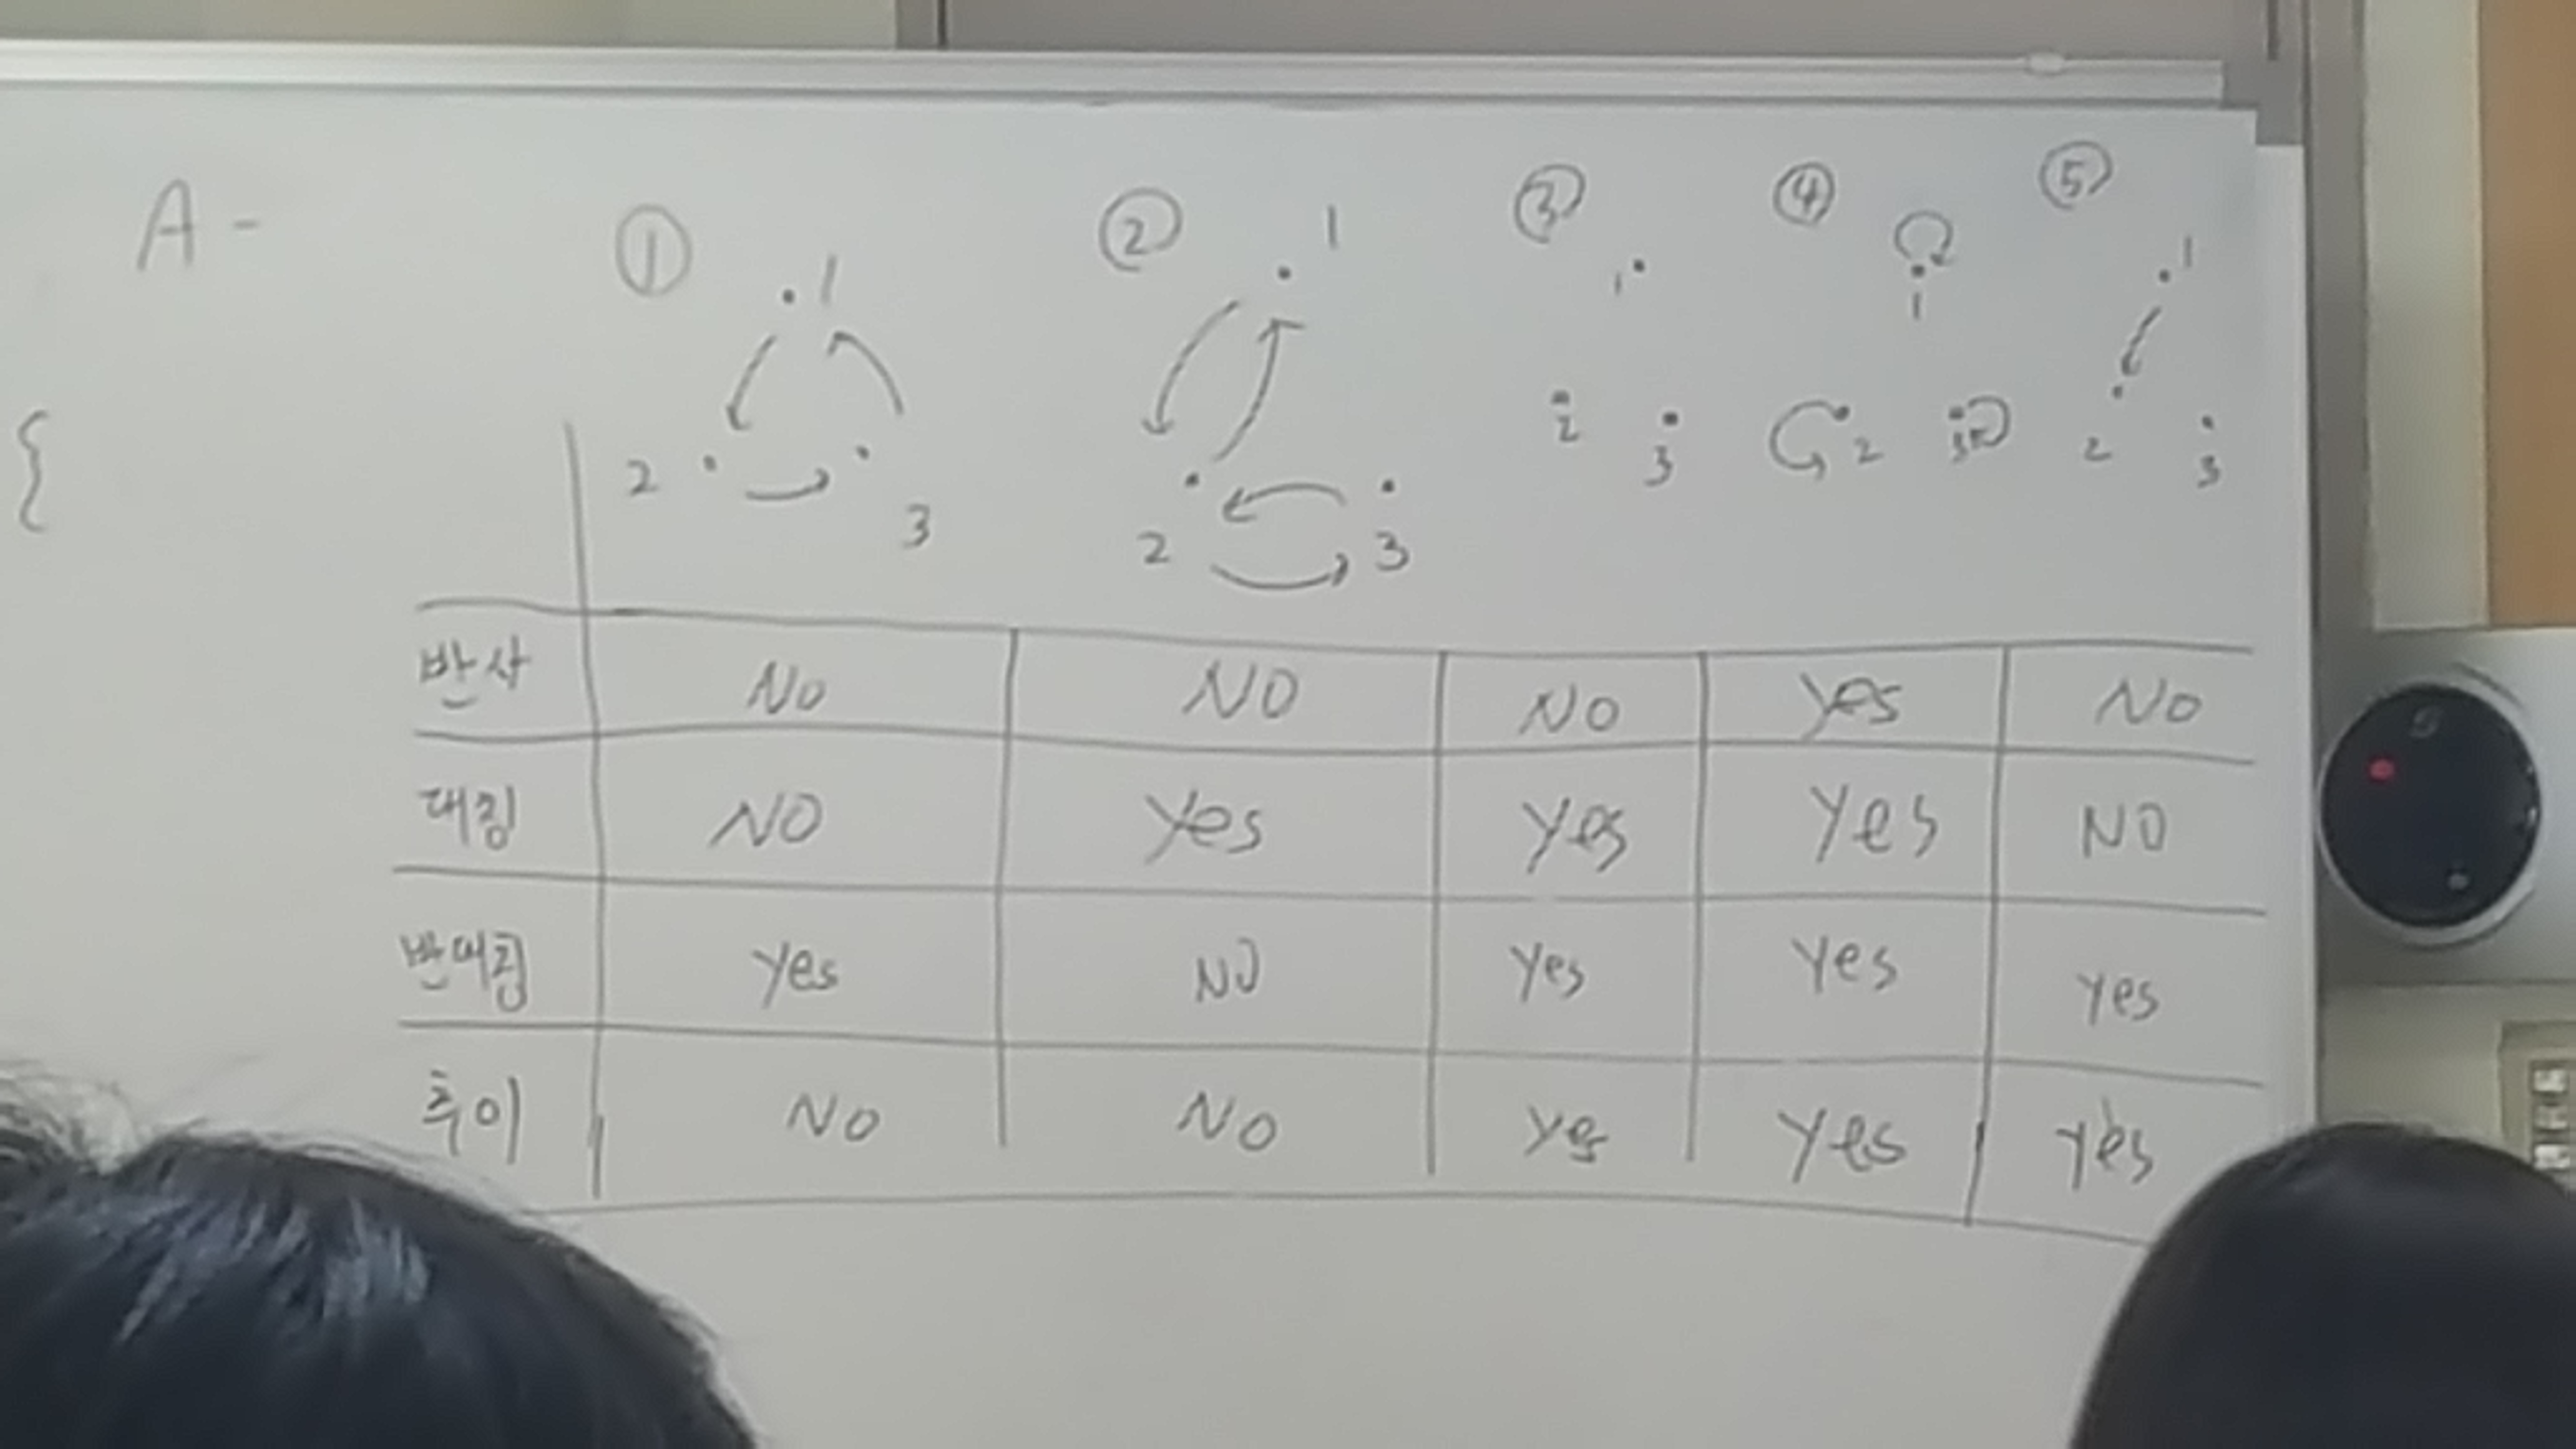 A -
{
① 1 2 3
② 1 2 3
③ 1 2 3
④ 1 2 3
⑤ 1 2 3
반사 NO NO NO yes NO
대칭 NO yes yes yes NO
반대칭 yes NO yes yes yes
추이 NO NO yes yes yes